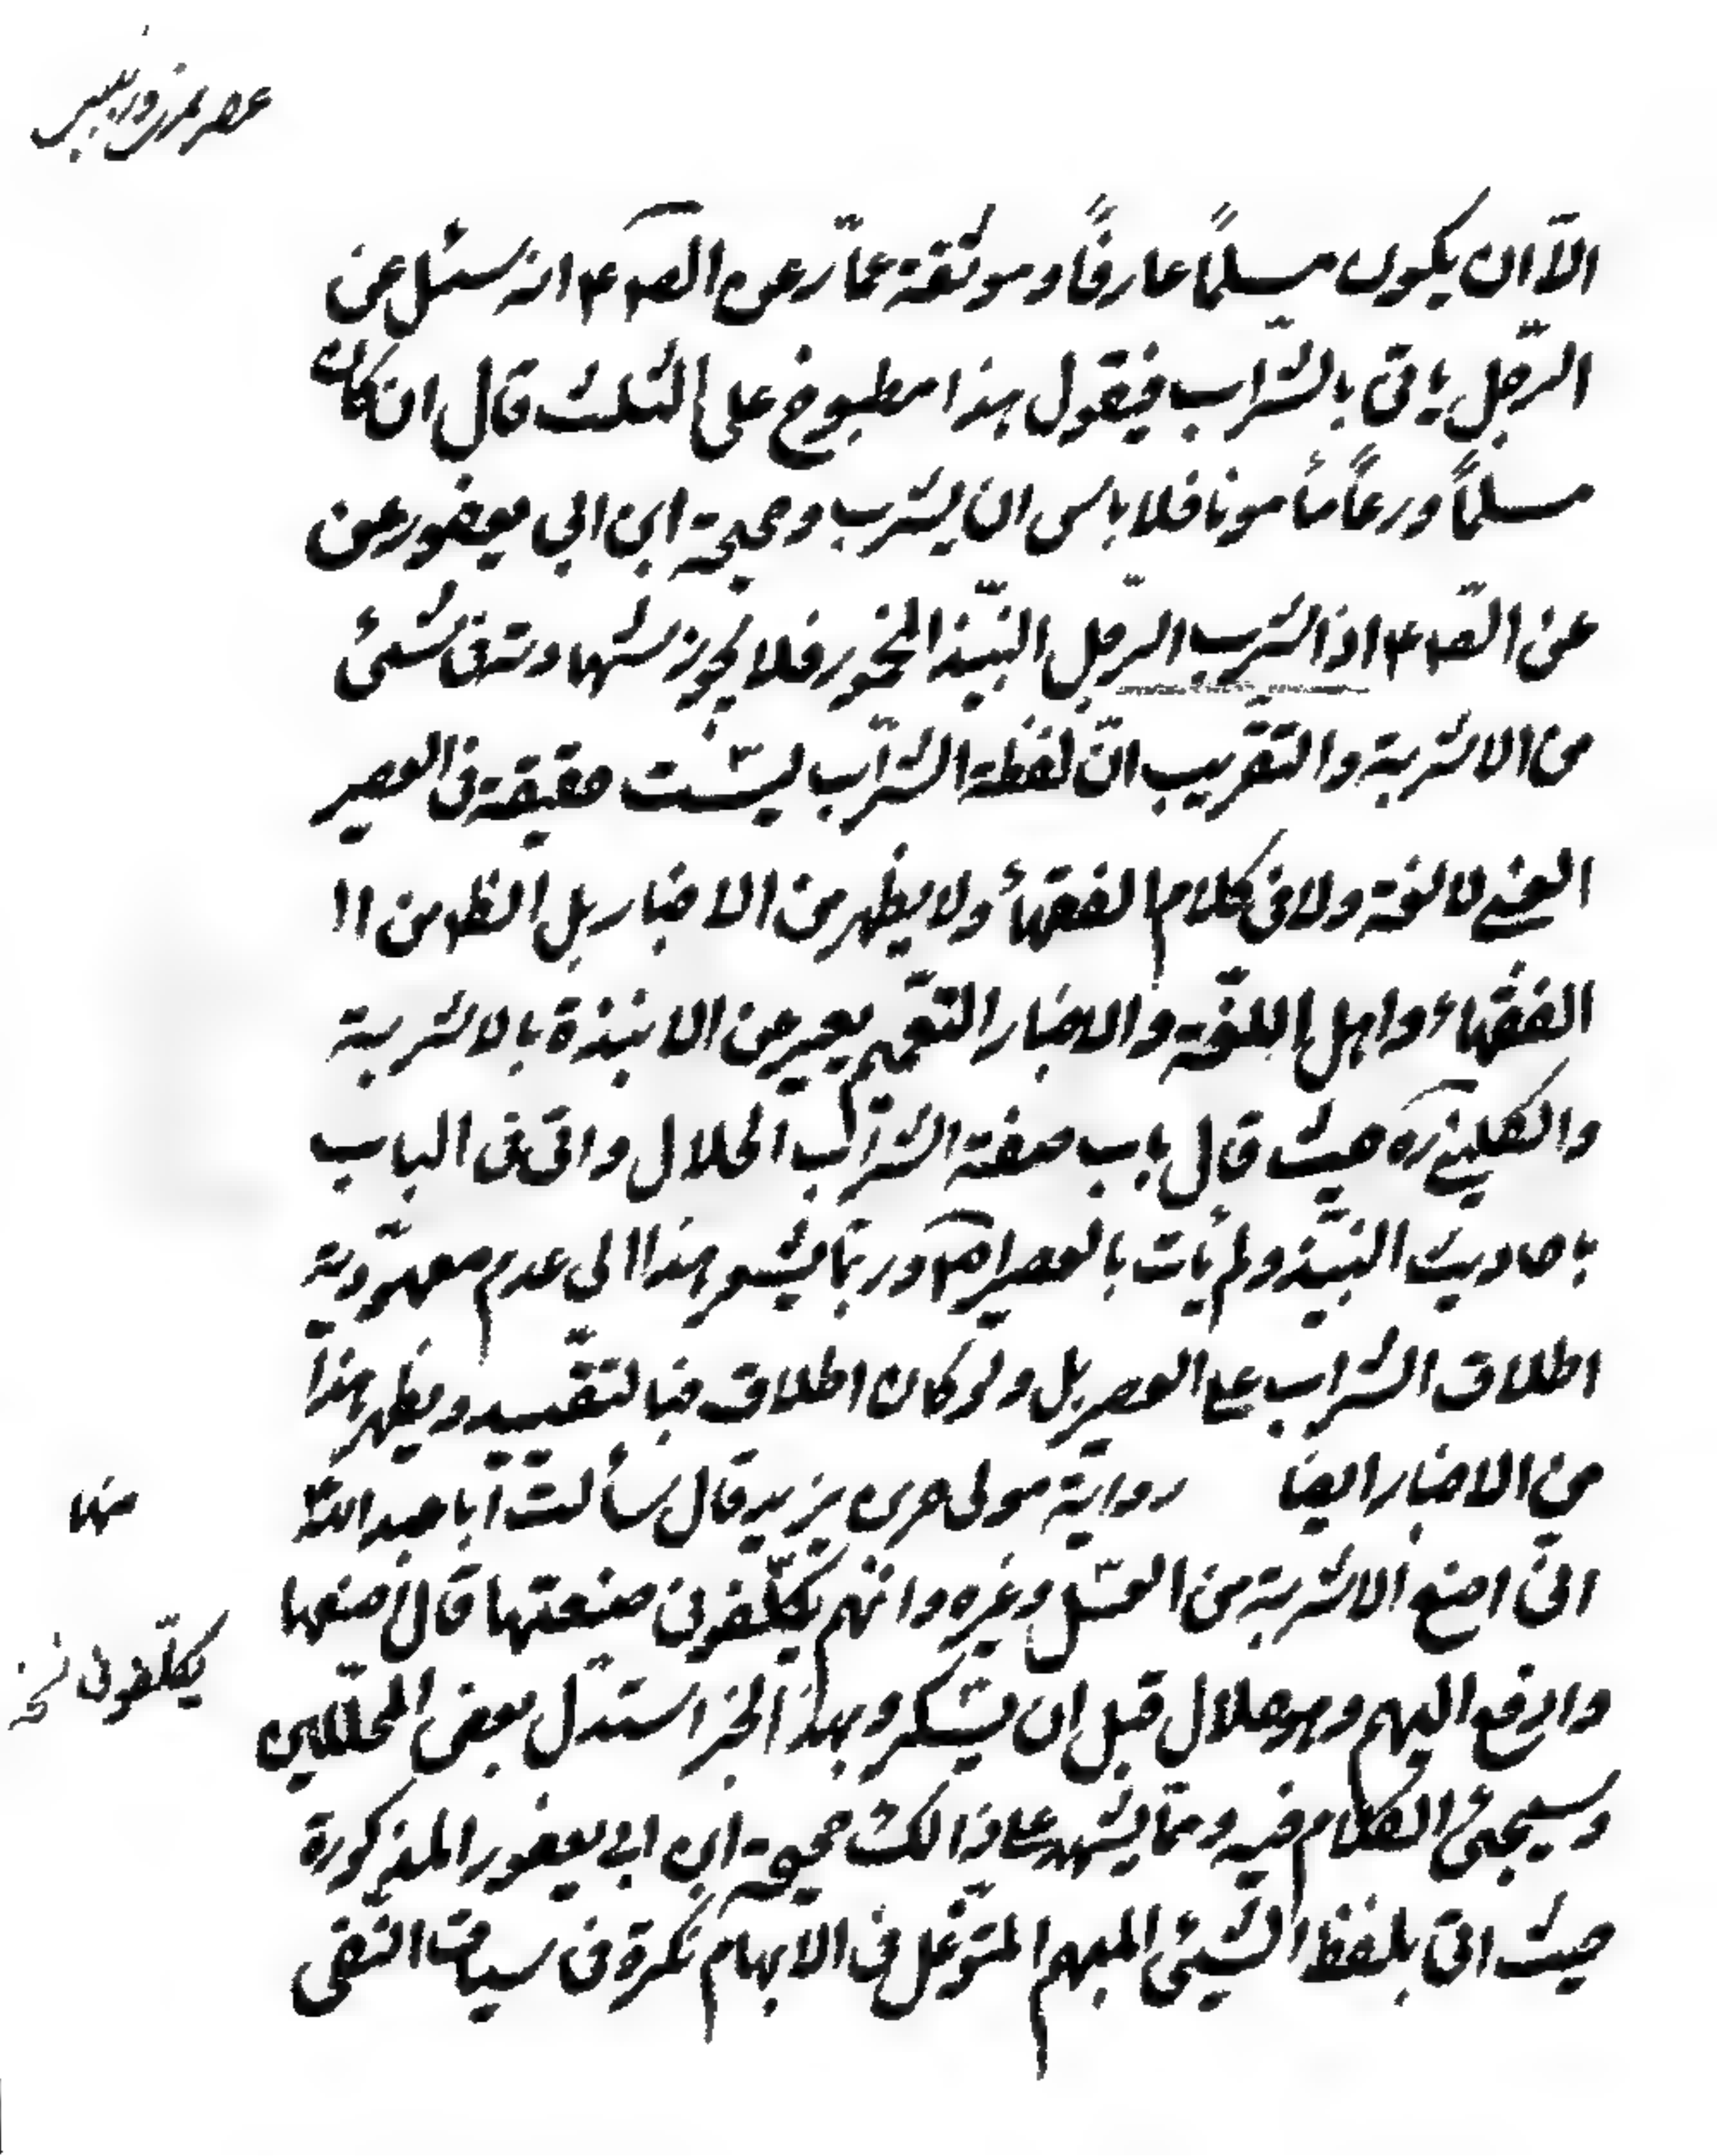 الّا ان يكون مسلمًا عارفًا وموثقة عمّار عن الص۴ انه سئل عن
الرّجل ياتى بالشّراب فيقول هذا مطبوخ على الثلث قال ان كان
مسلمًا ورعًا مأمونا فلا باس ان يشرب وصحيحة ابن ابي يعفور عن
عن الص۴ اذا شرب الرّجل النبيّذ المخمور فلا يجوز شهادته فى شئ
من الاشربة والتقريب انّ لفظة الشّراب ليست حقيقة فى العصير
العنبى لا لغة ولا فى كلام الفقهأ ولا يظهر من الاخبار بل الظ من ا
الفقهاء واهل اللغة والاخبار التعميم يعبر عن الانبذة بالاشربة
والكلينى ره حيث قال باب صفة الشّراب الحلال واتى فى الباب
باحاديث النبيّذ ولم يأت بالعصير اصلا وربّما يشعر هذا الى عدم معهوديّة
اطلاق الشّراب على العصير بل ولو كان اطلاق فبالتقييد ويظهر هذا
من الاخبار ايضا رواية مولى حر بن يزيد قال سألت أبا عبد اللّه
انّى اصنع الاشربة من العسل وغيره وانهم يكلّفونى صنعتها قال اصنعها
وادفع اليهم وهو حلال قبل ان يسكر وبهذا الخبر استدل بعض المحلّلين
وسيجئ الكلام فيه وممّا يشهد على ذالك صحيحة ابن ابى يعفور المذكورة
حيث اتى بلفظ الشيئ المبهم المتوغّل فى الابهام نكرة فى سياق النفى
منها
يكلّفونى نسخه